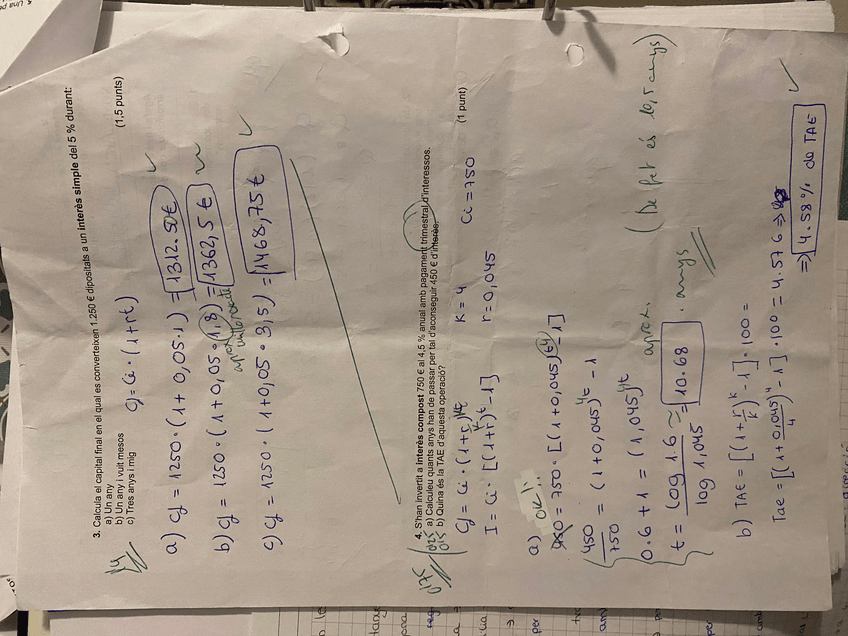 3. Calcula el capital final en el qual es converteixen 1.250 € dipositats a un interès simple del 5 % durant:
a) Un any
b) Un any i vuit mesos
c) Tres anys i mig
(1,5 punts)
Cf = Ci · (1+rt)
a) Cf = 1250 · (1 + 0,05 · 1) = 1312.50€
b) Cf = 1250 · (1 + 0,05 · 1,8) = 1362,5 €
aprox.
c) Cf = 1250 · (1+0,05 · 3,5) = 1468,75€
4. S'han invertit a interès compost 750 € al 4,5 % anual amb pagament trimestral d'interessos.
a) Calculeu quants anys han de passar per tal d'aconseguir 450 € d'interès.
b) Quina és la TAE d'aquesta operació?
(1 punt)
Cf = Ci · (1+r/k)^kt K = 4 Ci = 750
I = Ci · [(1+r)^t - 1] r = 0,045
a) OK!!
450 = 750 · [(1+0,045)^t4 - 1]
450/750 = (1+0,045)^4t - 1
0.6 + 1 = (1,045)^4t
t = log 1.6 / log 1,045 ≈ 10.68 anys
aprox.
(De fet és 10,5 anys)
b) TAE = [(1 + r/k)^k - 1] · 100 =
Tae = [(1 + 0,045/4)^4 - 1] · 100 = 4.576 ⇒
⇒ 4.58% de TAE